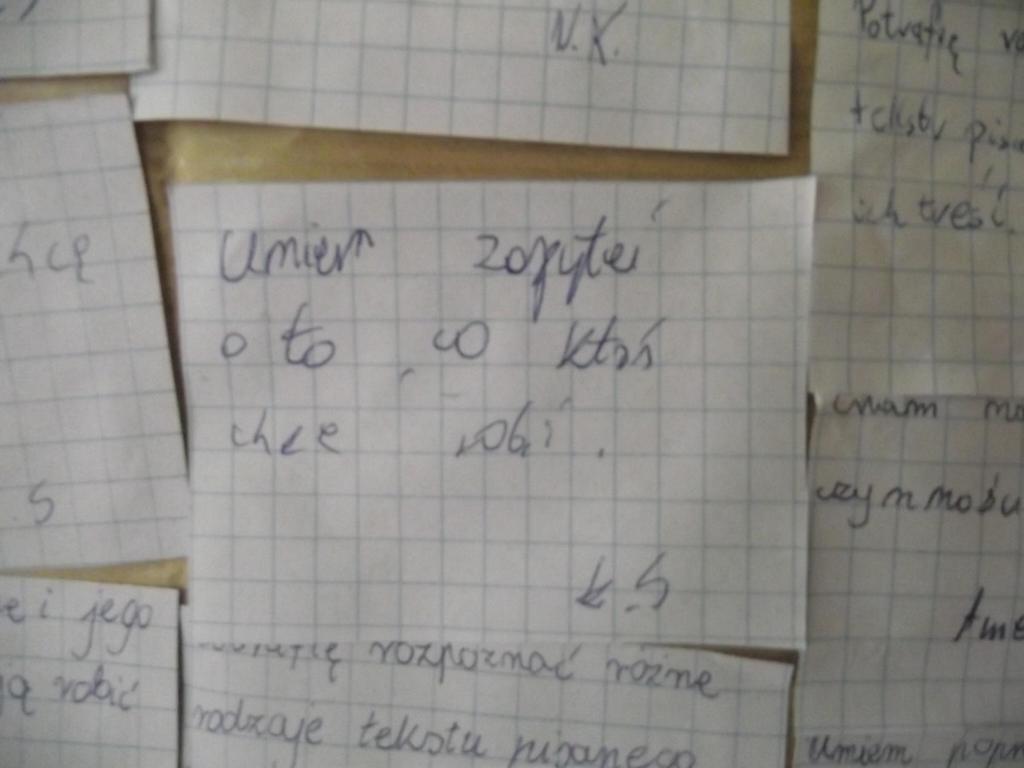 N.K.
Potrafię
teksty
ich treść.
hcę
Umiem zapytać
o to co ktoś
chce robi.
S
K.S
mam
czynności
e i jego
ją robić
rozpoznać różne
rodzaje tekstu pisanego
Umiem